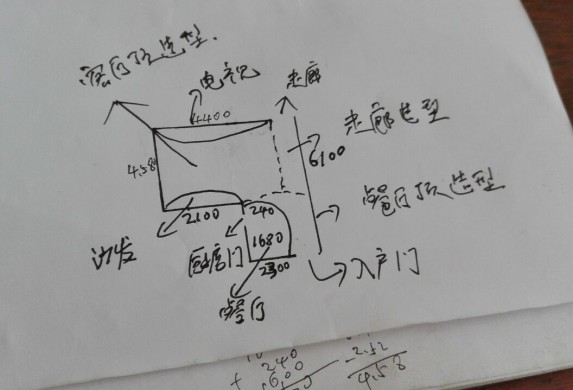 客厅顶造型.
电视
走廊
4400
走廊造型
4.58
6100
餐厅顶造型
2100
240
沙发
厨房门
1680
2300
入户门
餐厅
240
+ 600
- 2.52
4.58